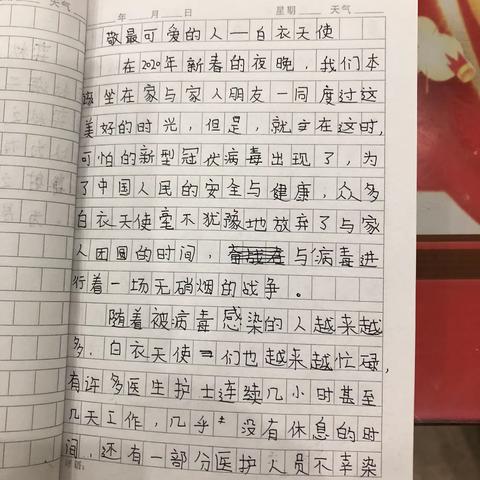 年 月 日 星期 天气
天气
敬最可爱的人—白衣天使
在2020年新春的夜晚，我们本
该坐在家与家人朋友一同度过这
美好的时光，但是，就在这时，
可怕的新型冠状病毒出现了，为
了中国人民的安全与健康，众多
白衣天使毫不犹豫地放弃了与家
人团圆的时间，与病毒进
行着一场无硝烟的战争。
随着被病毒感染的人越来越
多，白衣天使们也越来越忙碌，
有许多医生护士连续几小时甚至
几天工作，几乎没有休息的时
间，还有一部分医护人员不幸染